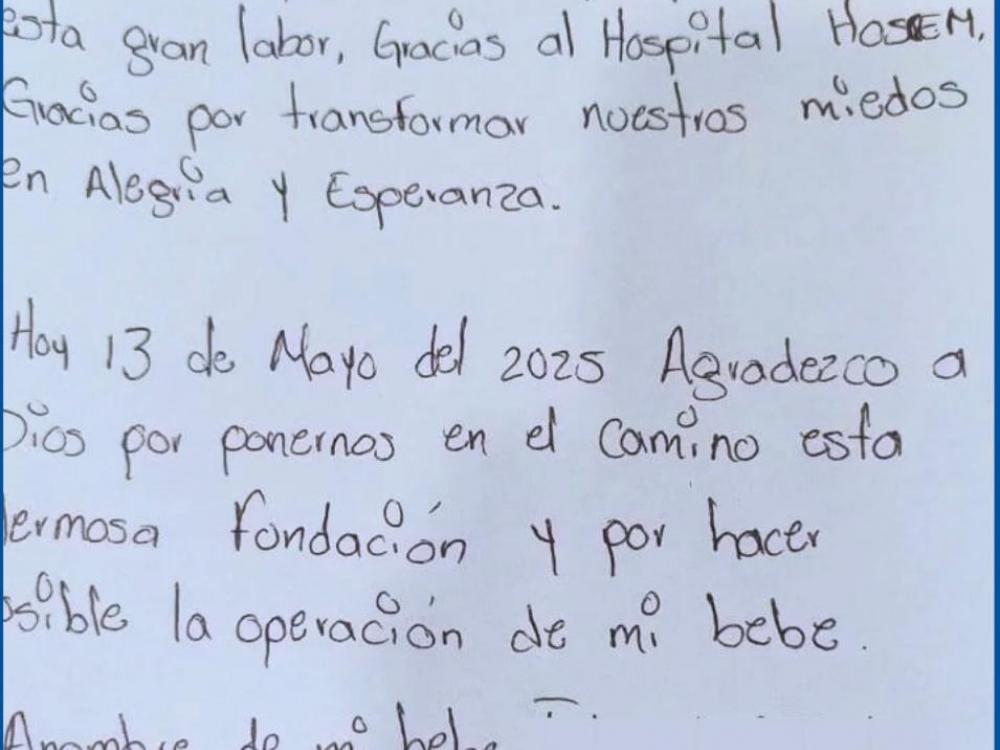 esta gran labor, Gracias al Hospital HOSCEM,
Gracias por transformar nuestros miedos
en Alegria y Esperanza.
Hoy 13 de Mayo del 2025 Agradezco a
Dios por ponernos en el camino esta
hermosa fondación y por hacer
osible la operación de mi bebe.
Anombre de mi bebe